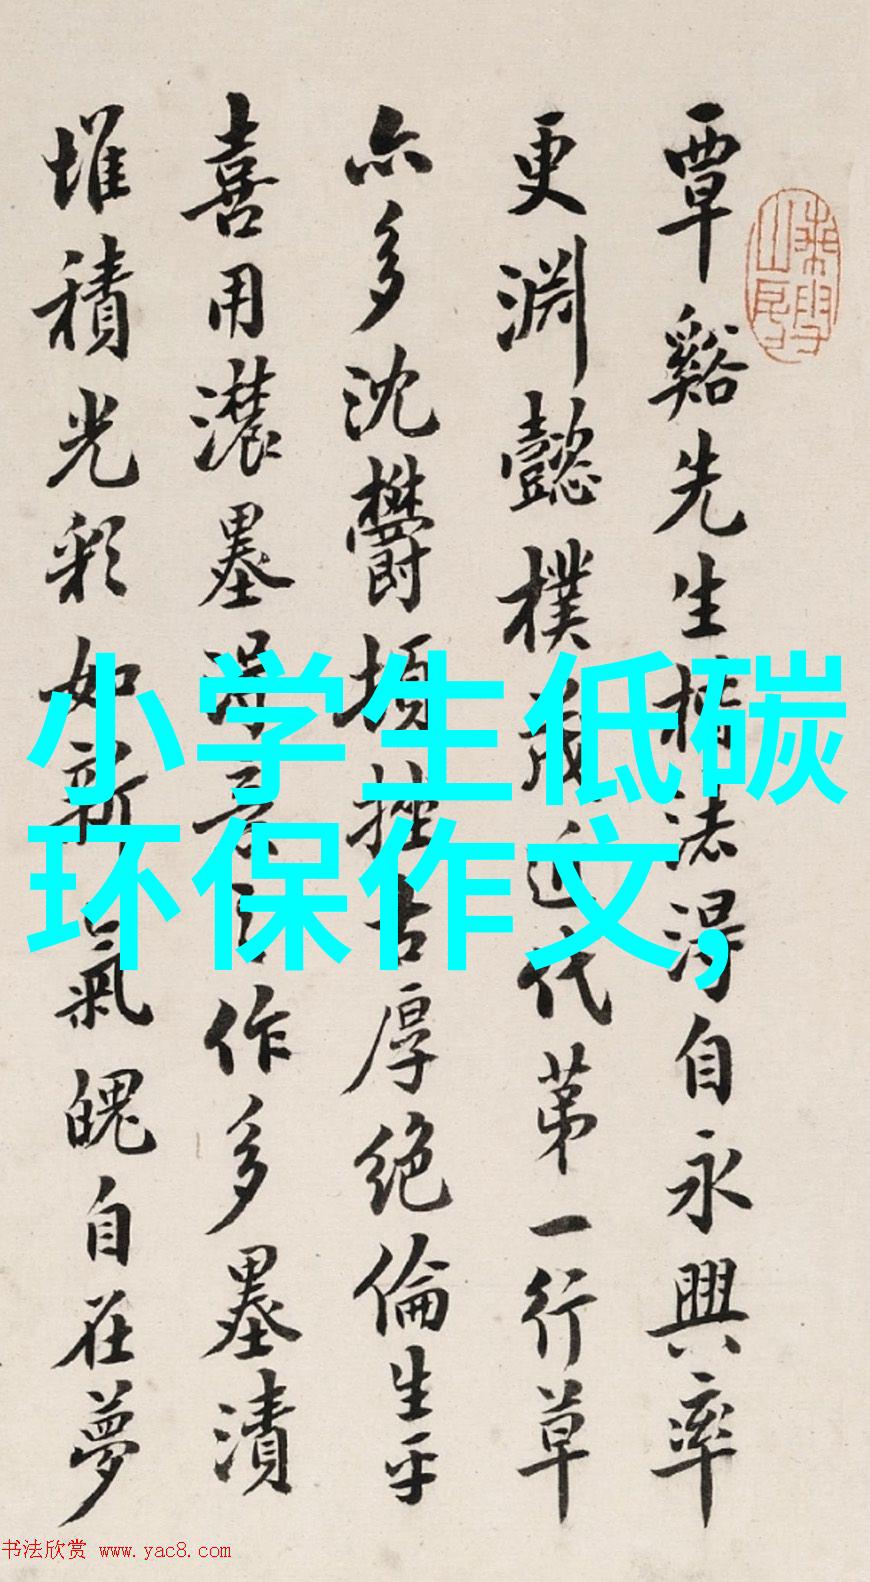 覃谿先生楷法得自永興率
更淵懿樸茂近代第一行草
亦多沈鬱頓挫古厚絕倫生平
喜用濃墨得意之作多墨漬
堆積光彩如新氣魄自在夢
小学生低碳
环保作文,
书法欣赏 www.yac8.com